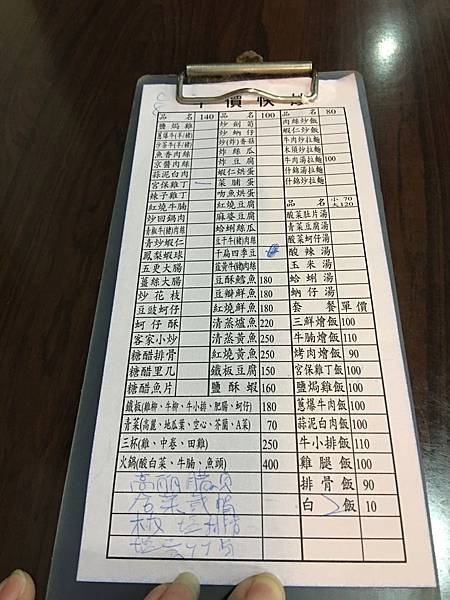 平價快炒
品名 140
鹽焗雞
蔥爆牛(羊/豬)
沙茶牛(羊/豬)
魚香肉絲
京醬肉絲
蒜泥白肉
宮保雞丁
辣子雞丁
紅燒牛腩
炒回鍋肉
青椒牛(豬)肉絲
青炒蝦仁
鳳梨蝦球
五更大腸
薑絲大腸
炒花枝
豆豉蚵仔
蚵仔酥
客家小炒
糖醋排骨
糖醋里几
糖醋魚片
品名 100
炒劍筍
炒蚋仔
炒(炸)香菇
炸絲瓜
炸豆腐
蝦仁烘蛋
菜脯蛋
吻魚烘蛋
紅燒豆腐
麻婆豆腐
蛤蜊絲瓜
豆干牛(豬)肉絲
干扁四季豆
韭黃牛(豬)肉絲
豆酥鱈魚 180
豆瓣鮮魚 180
紅燒鮮魚 180
清蒸爐魚 220
清蒸黃魚 250
紅燒黃魚 250
鐵板豆腐 150
鹽酥蝦 160
鐵板(雞柳、牛柳、牛小排、肥腸、蚵仔) 180
青菜(高麗、地瓜葉、空心、芥蘭、A菜) 70
三杯(雞、中卷、田雞) 250
火鍋(酸白菜、牛腩、魚頭) 400
品名 80
肉絲炒飯
蝦仁炒飯
牛肉炒拉麵
木須炒拉麵
牛肉湯拉麵 100
什錦湯拉麵
什錦炒拉麵
品名 小70 大120
酸菜肚片湯
青菜豆腐湯
酸菜蚵仔湯
酸辣湯
玉米湯
蛤蜊湯
蚋仔湯
套餐 單價
三鮮燴飯 100
牛腩燴飯 110
烤肉燴飯 90
宮保雞丁飯 100
鹽焗雞飯 100
蔥爆牛肉飯 100
蒜泥白肉飯 100
牛小排飯 110
雞腿飯 100
排骨飯 90
白飯 10
高麗臘肉